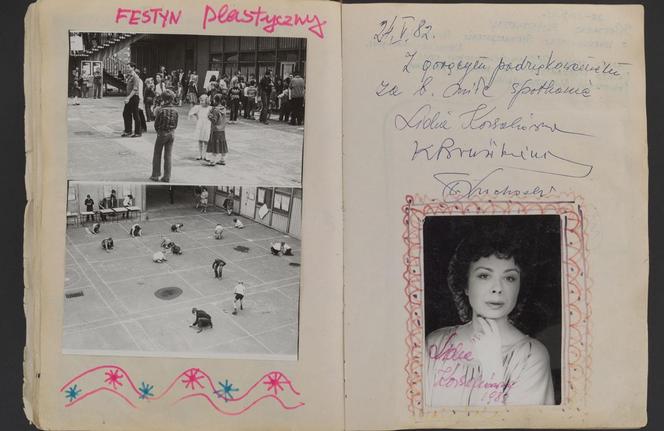 FESTYN plastyczny
24.V.82.
Z gorącym podziękowaniem
za b. miłe spotkanie
Lidia Korsakówna
Lidia
Korsakówna
1982